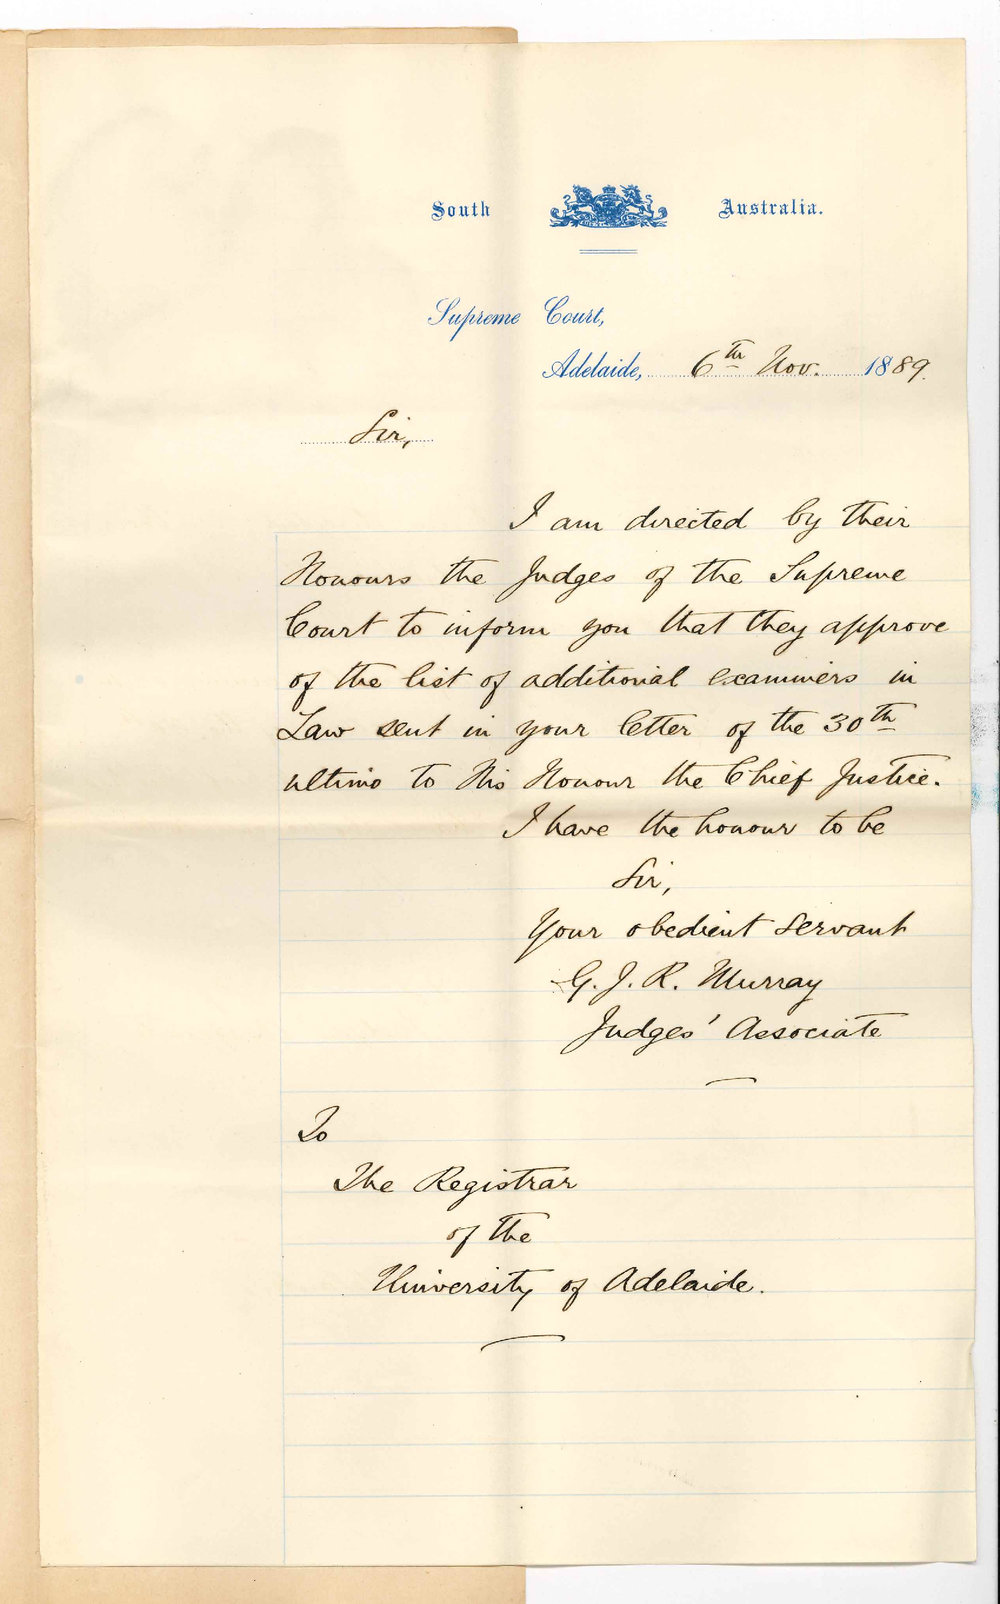 South Australia.
Supreme Court,
Adelaide, 6th Nov. 1889.
Sir,
I am directed by their
Honours the Judges of the Supreme
Court to inform you that they approve
of the list of additional examiners in
Law sent in your letter of the 30th
ultimo to His Honour the Chief Justice.
I have the honour to be
Sir,
Your obedient servant
G. J. R. Murray
Judges' Associate
To
The Registrar
of the
University of Adelaide.